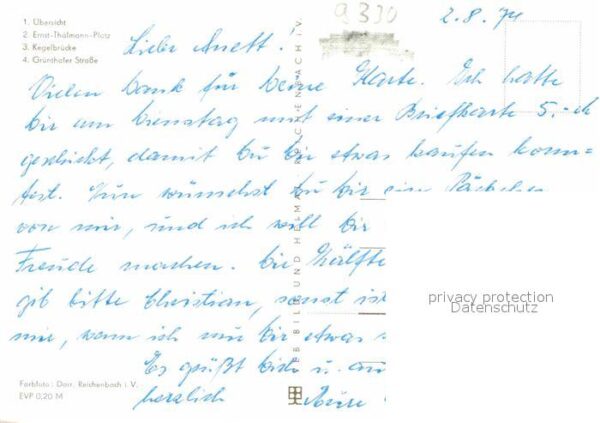 1. Übersicht
2. Ernst-Thälmann-Platz
3. Kegelbrücke
4. Grünthaler Straße
a 330
2.8.74
Liebe Anett!
Vielen Dank für Deine Karte. Ich hatte
Dir am Dienstag mit einer Briefkarte 5.-
geschickt, damit Du Dir etwas kaufen konn-
test. Nun wünschst Du Dir ein Päckchen
von mir, und ich will Dir
Freude machen. Die Hälfte
gib bitte Christian, sonst ist
mir, wenn ich nur Dir etwas
Es grüßt Dich u.
herzlich
VEB BILD UND HEIMAT REICHENBACH I. V.
privacy protection
Datenschutz
Farbfoto: Darr, Reichenbach i. V.
EVP 0,20 M